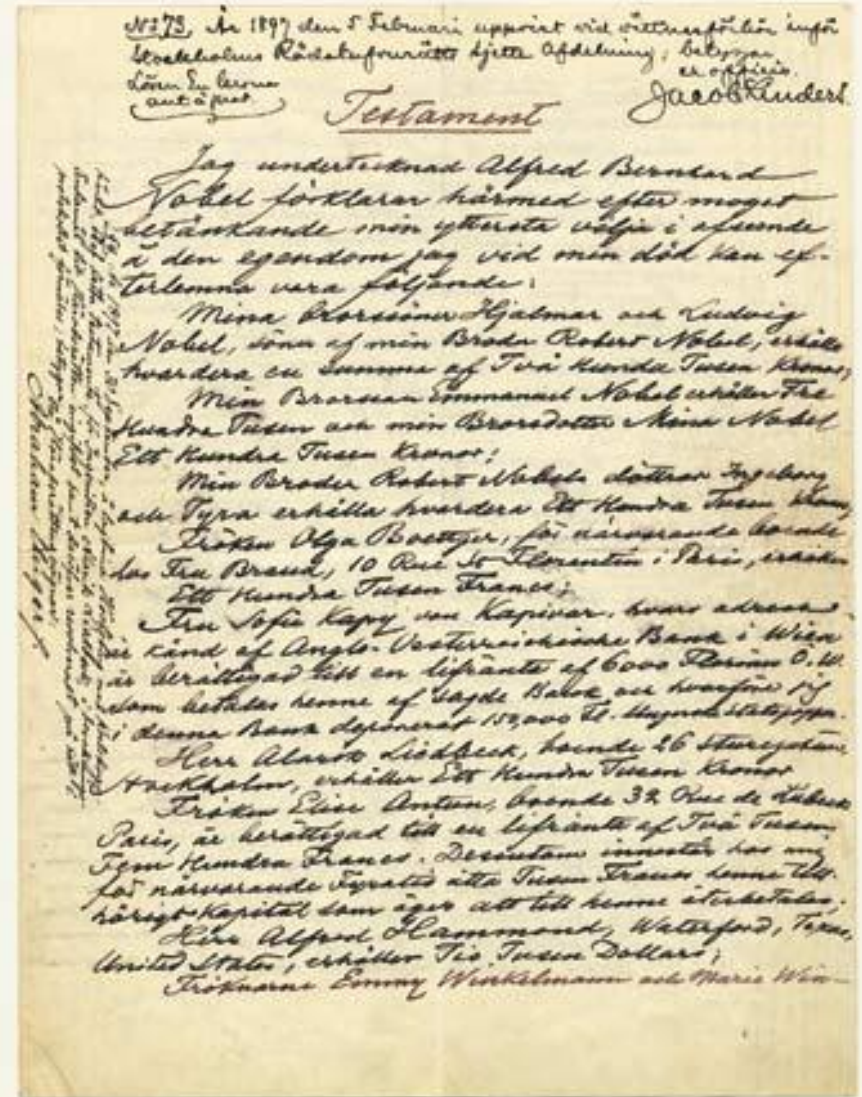 No 73, År 1897 den 5 Februari uppvist vid vittnesförhör inför
Stockholms Rådstufvurätts sjette Afdelning; betygar
Lösen En krona
ex officio
Jacob Linders.
Testament
Jag undertecknad Alfred Bernhard
Nobel förklarar härmed efter moget
betänkande min yttersta vilja i afseende
å den egendom jag vid min död kan ef-
terlemna vara följande:
Mina Brorsöner Hjalmar och Ludvig
Nobel, söner af min Broder Robert Nobel, erhålla
hvardera en summa af Två Hundra Tusen Kronor;
Min Brorson Emmanuel Nobel erhåller Tre
Hundra Tusen och min Brorsdotter Mina Nobel
Ett Hundra Tusen Kronor;
Min Broder Robert Nobels döttrar Ingeborg
och Tyra erhålla hvardera Ett Hundra Tusen Kronor;
Fröken Olga Boettger, för närvarande boende
hos Fru Brand, 10 Rue St Florentin i Paris, erhåller
Ett Hundra Tusen Francs;
Fru Sofie Kapy von Kapivar, hvars adress
är känd af Anglo-Oesterreichische Bank i Wien
är berättigad till en lifränta af 6000 Florins Ö.W.
som betalas henne af sagde Bank och hvarföre jag
i denna Bank deponerat 150,000 Fl. i Ungerska
Herr Alarik Liedbeck, boende 26 Sturegatan,
Stockholm, erhåller Ett Hundra Tusen Kronor
Fröken Elise Antun, boende 32 Rue de Lubeck
Paris, är berättigad till en lifränta af Två Tusen
Fem Hundra Francs. Desutom innestår hos mig
för närvarande Fyratio åtta Tusen Francs henne till-
hörigt Kapital som äger att till henne återbetalas;
Herr Alfred Hammond, Waterford, Texas,
United States, erhåller Tio Tusen Dollars;
Fröknarne Emmy Winkelmann och Marie Win-